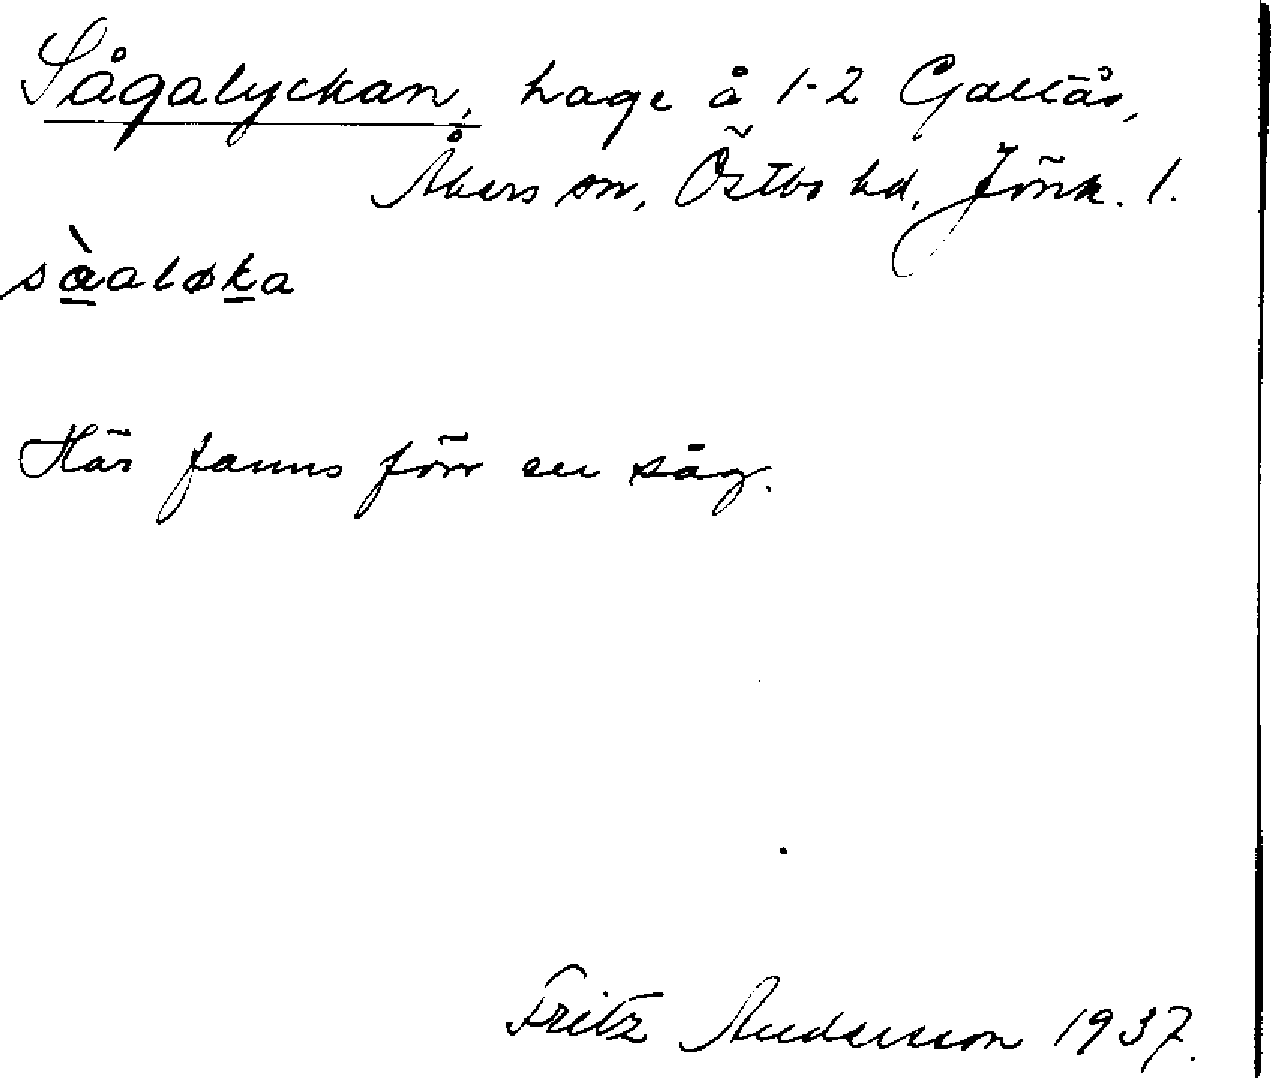 Sågalyckan, hage å 1-2 Galtås,
Åkers sn, Östbo hd, Jönk. l.
sàaløka
Här fanns förr en såg.
Fritz Andersson 1937.